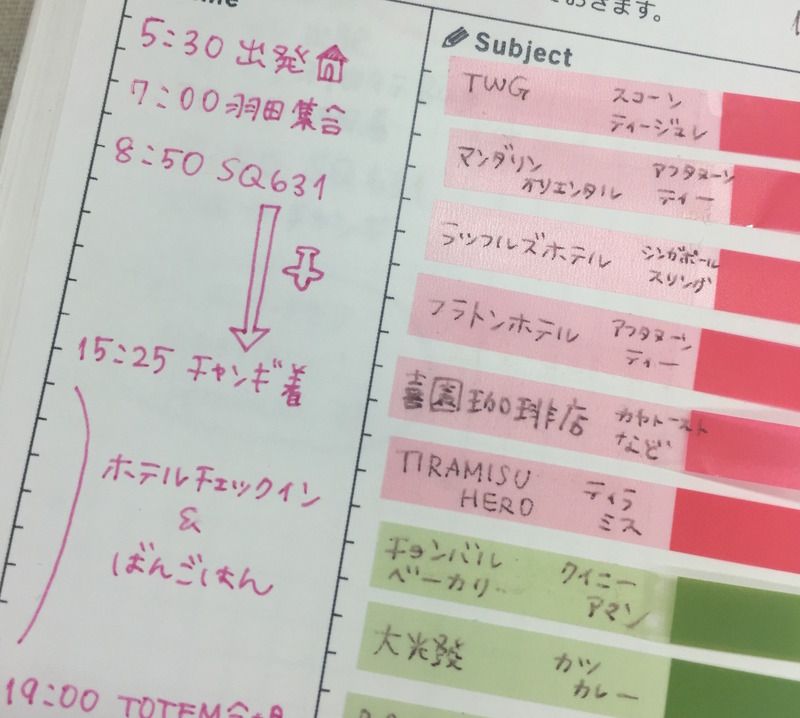 5:30 出発
7:00 羽田集合
8:50 SQ631
15:25 チャンギ着
ホテルチェックイン
&
ばんごはん
19:00 TOTEM
おきます。
Subject
TWG スコーン
ティージュレ
マンダリン アフタヌーン
オリエンタル ティー
ラッフルズホテル シンガポール
スリング
フラトンホテル アフタヌーン
ティー
喜園珈琲店 カヤトースト
など
TIRAMISU ティラ
HERO ミス
チョンバル クイニー
ベーカリー アマン
大光發 カツ
カレー